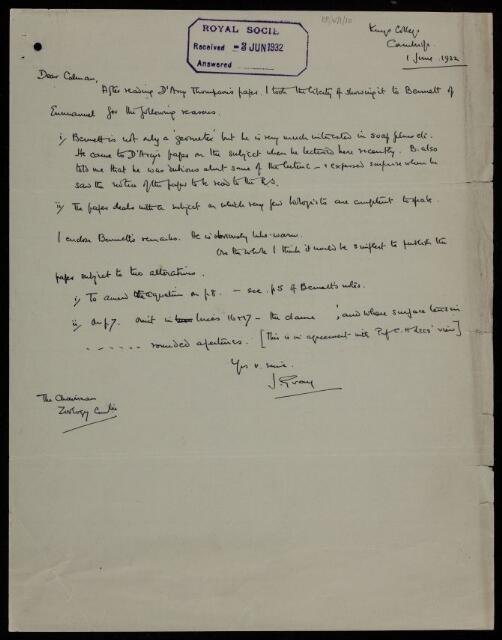 RR/1/1/10
ROYAL SOCIE
Received -3 JUN 1932
Answered
Kings College
Cambridge
1 June 1932
Dear Colman,
After reading D'Arcy Thompson's paper, I took the liberty of showing it to Bennett of
Emmanuel for the following reasons.
i) Bennett is not only a 'geometer' but he is very much interested in soap films etc.
He came to D'Arcy's paper on the subject when he lectured here recently. B. also
told me that he was dubious about some of the lecture - & expressed surprise when he
saw the notice of the paper to be read to the R.S.
ii) The paper deals with a subject on which very few biologists are competent to speak.
I endorse Bennett's remarks. He is obviously luke-warm.
On the whole I think it would be simplest to publish the
paper subject to two alterations.
i) To amend the equation on p.8. - see p5 of Bennett's notes.
ii) On p.7. omit in lines 16 & 17 - the clause ', and whose surface
- - - - - - rounded apertures. [This is in agreement with Prof. C. H. Lees' view]
Yrs v. sinc.
J. Gray
The Chairman
Zoology Cmttee